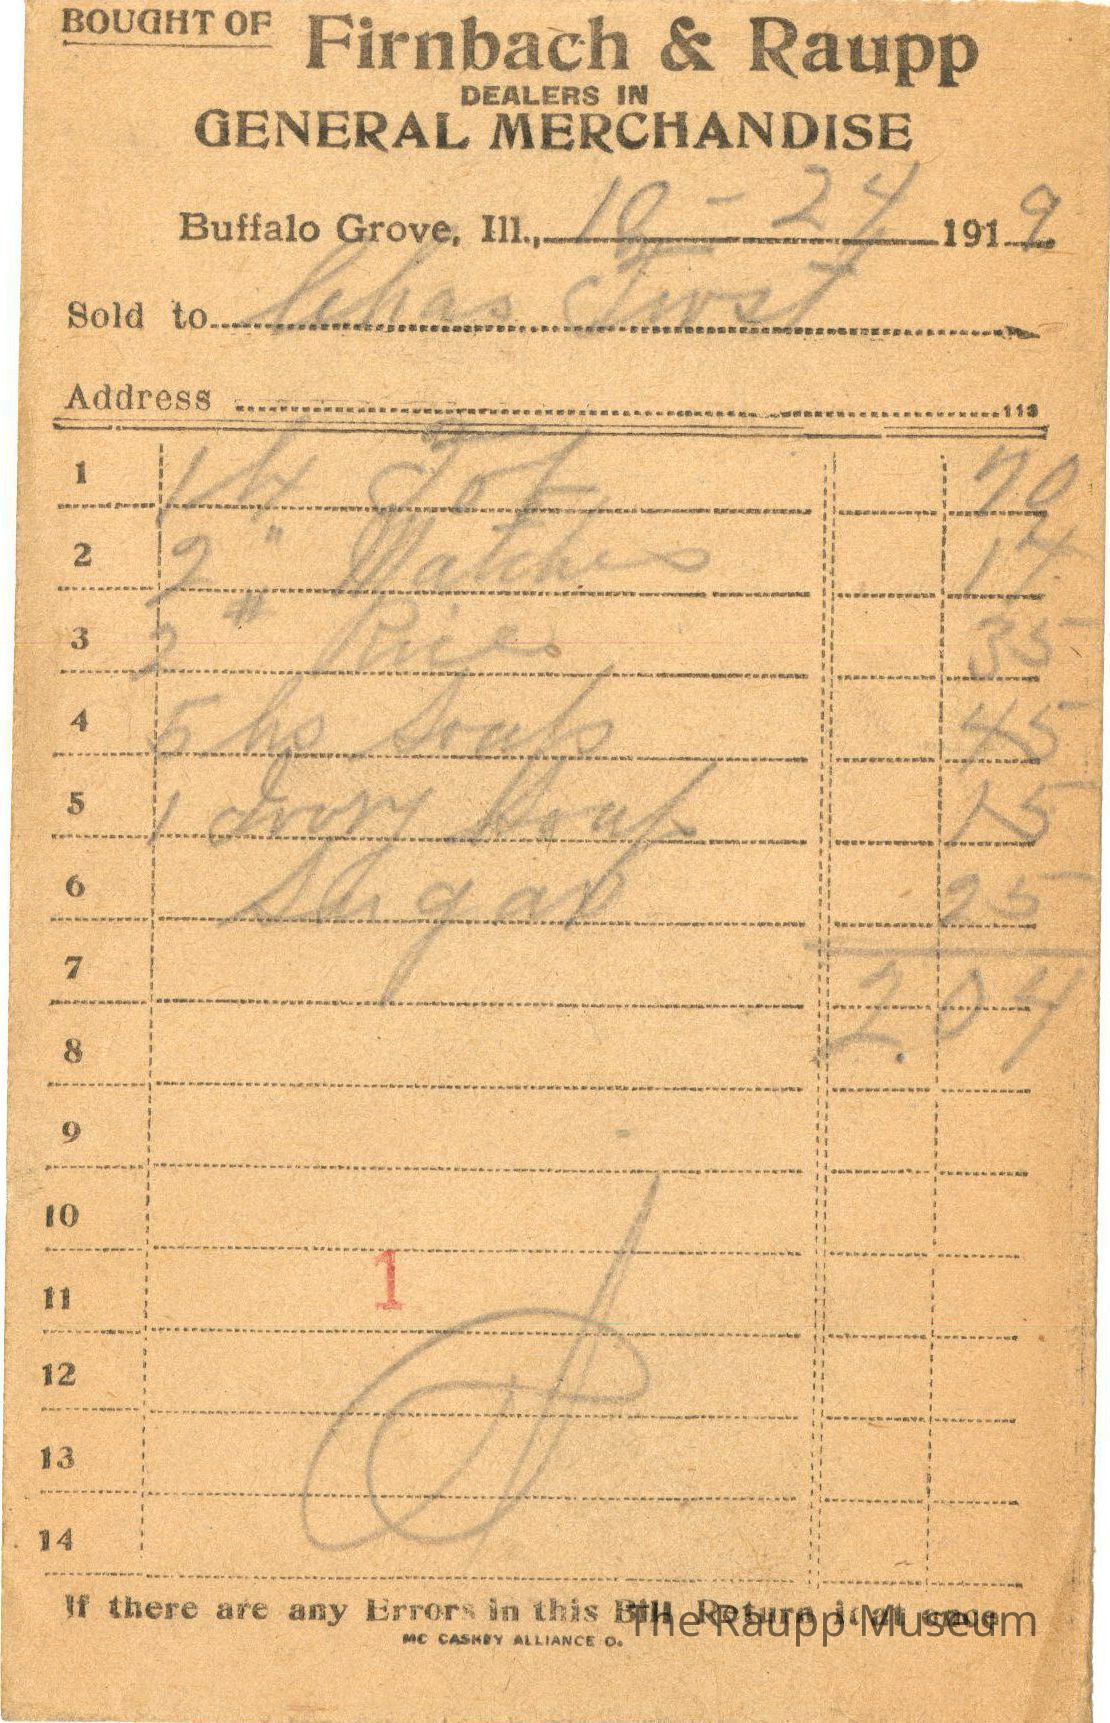 BOUGHT OF Firnbach & Raupp
DEALERS IN
GENERAL MERCHANDISE
Buffalo Grove, Ill., 10-24 1919
Sold to Chas
Address
113
1 1 70
2 2 " Matches 14
3 2 # Rice 35
4 5 Soap 45
5 1 Ivory Soap 15
6 Sugar 25
7 2.04
8
9
10
11 1
12
13
14
If there are any Errors in this Bill Return it at once
The Raupp Museum
MC CASKEY ALLIANCE O.